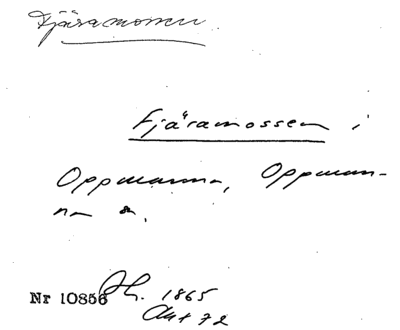 Fjäramossen
Fjäramossen i
Oppmanna, Oppman-
na sn.
Nr 10856 Sk. 1865
Akt 72